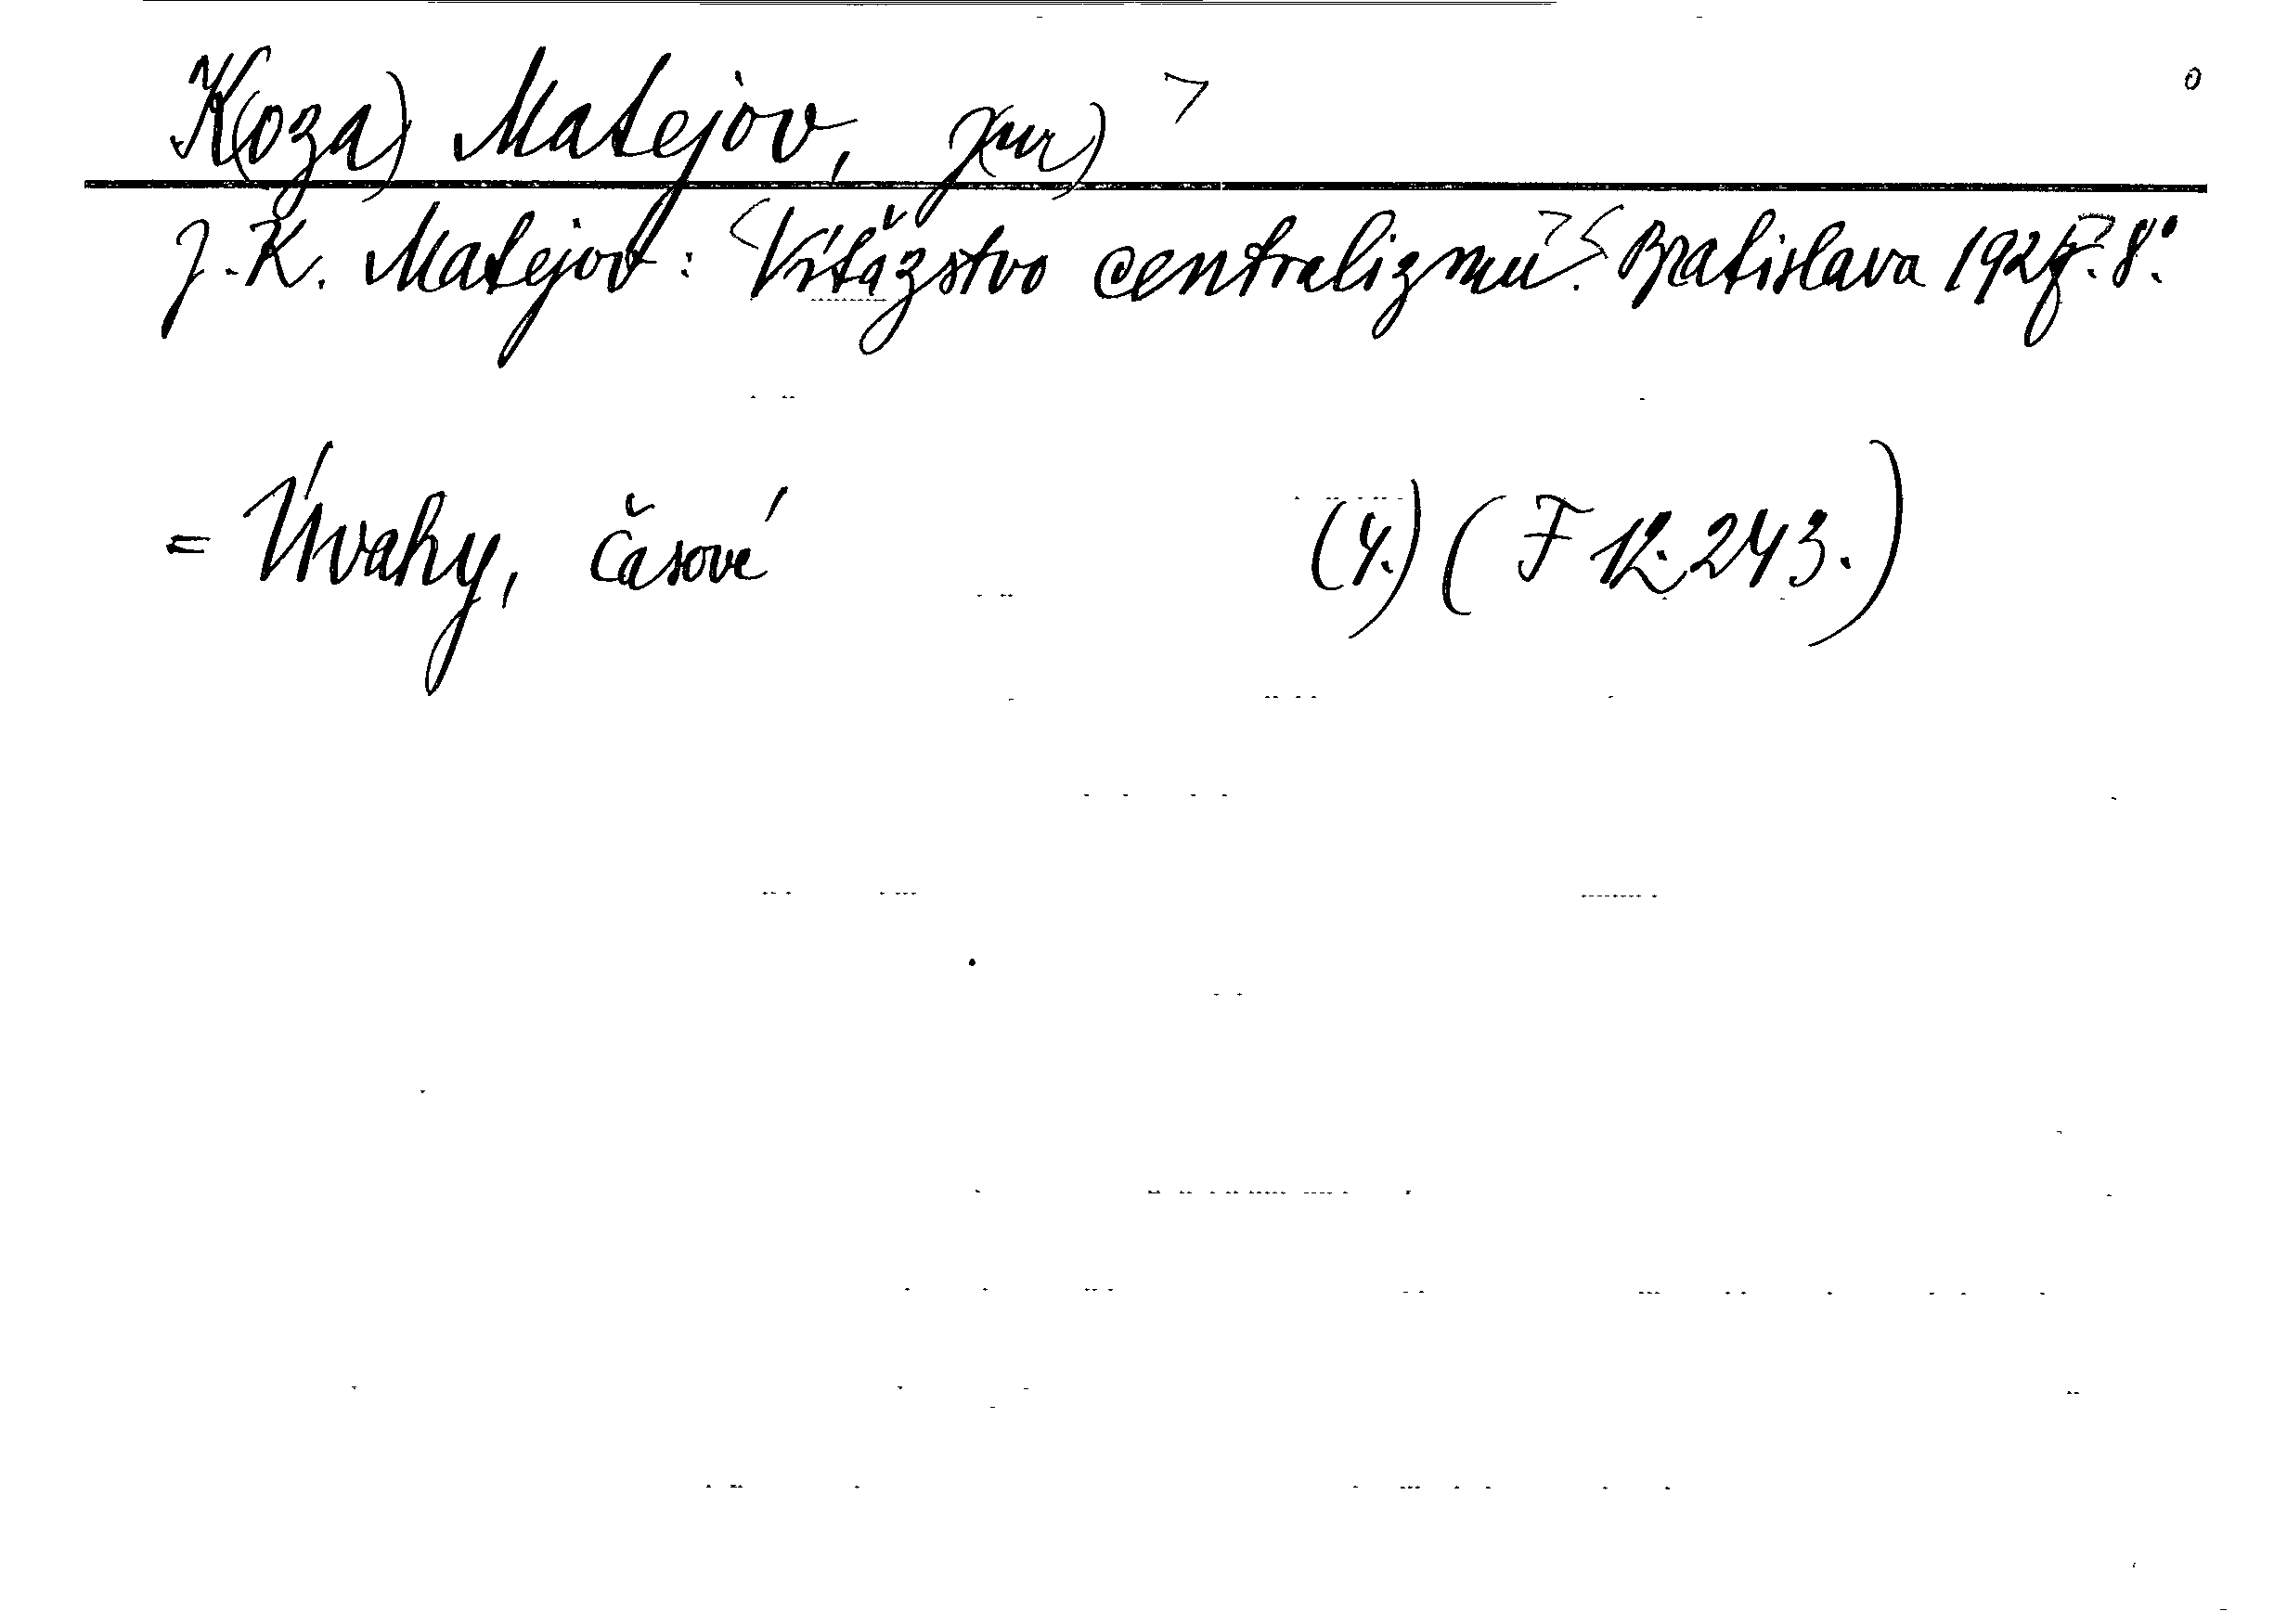 K(oza) Matejov, J(ur)
J. K. Matejov: Víťazstvo centralizmu. Bratislava 1927. 8°.
= Úvahy, časové (4.) (F 12.243.)